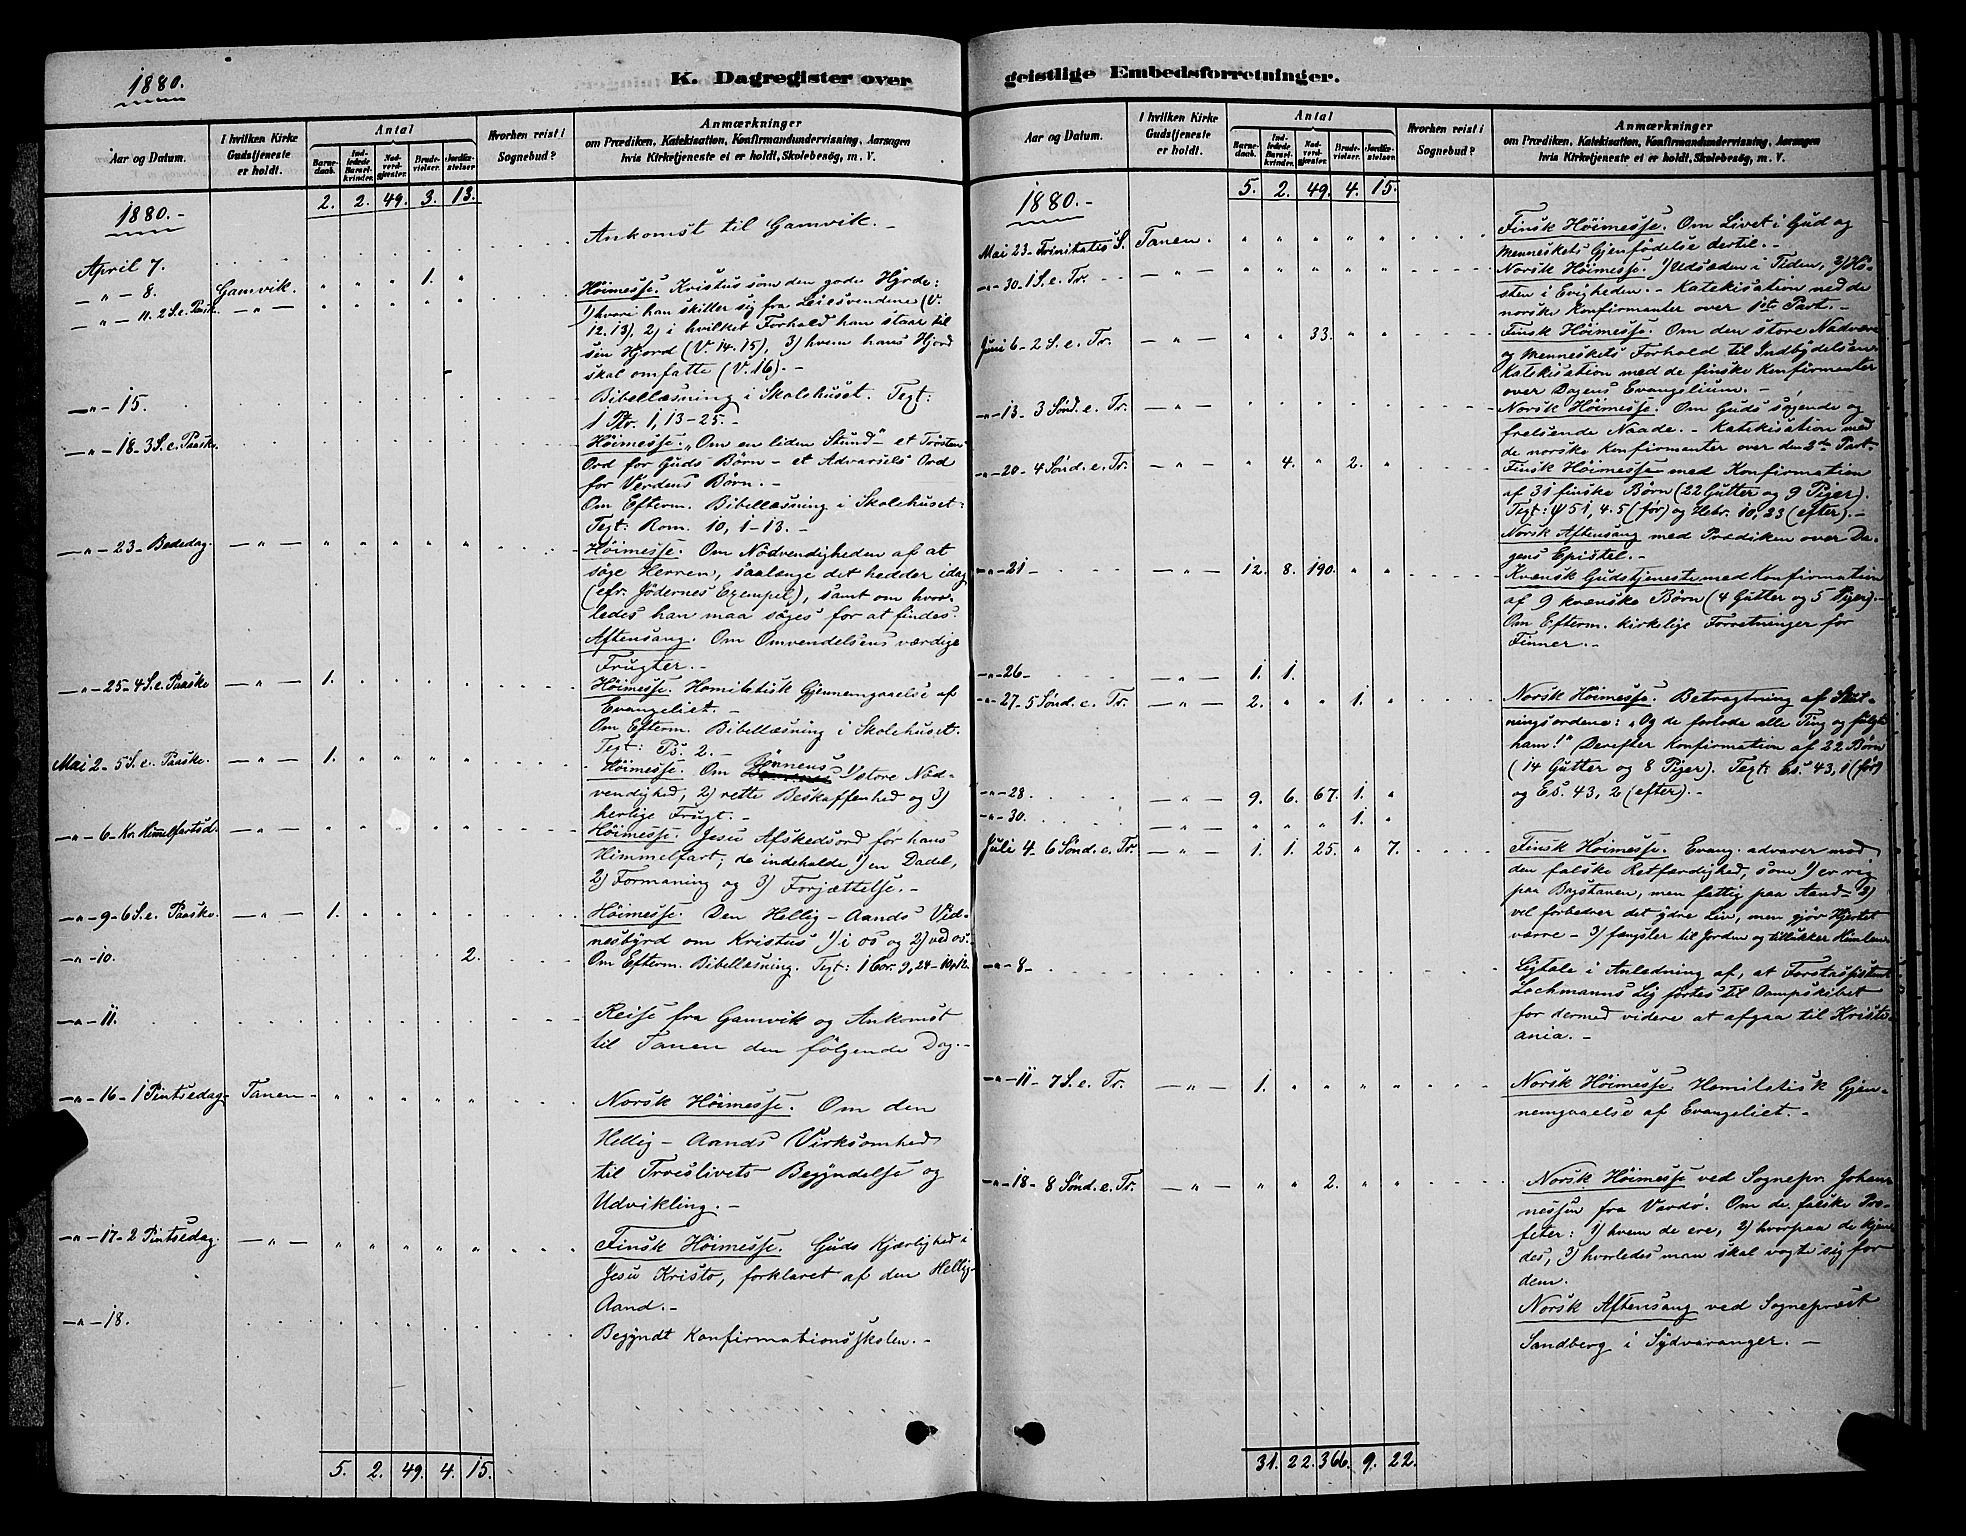 1880.
K. Dagregister over
I hvilken Kirke
Gudstjeneste
er holdt.
Aar og Datum.
Antal
Barne-
daab.
Ind-
ledede
Barsel-
kvinder.
Nad-
verd-
gjæster.
Brude-
vielser.
Jordfæ-
stelser.
Hvorhen reist i
Sognebud?
Anmærkninger
om Prædiken, Katekisation, Konfirmandundervisning, Aarsagen
hvis Kirketjeneste ei er holdt, Skolebesøg, m. V.
2. 2. 49. 3. 13.
1880.-
Ankomst til Gamvik.-
April 7.
—„— 8. Gamvik. „ „ „ 1. „
—„— 11. 2 S. e. Paask. —„— „ „ „ „ „
Høimesse. Kristus som den gode Hyrde:
1) hvori han skiller sig fra Leiesvendene (V.
12.13), 2) i hvilket Forhold han staar til
sin Hjord (V. 14. 15), 3) hvem hans Hjord
skal omfatte (V. 16).-
—„— 15.
Bibellæsning i Skolehuset. Text:
1 Ptr. 1, 13-25.-
—„— 18- 3 S. e. Paaske.
Høimesse: „Om en liden Stund" - et Trøstens
Ord for Guds Børn - et Advarsels Ord
for Verdens Børn.-
Om Efterm. Bibellæsning i Skolehuset.
Text: Rom. 10, 1-13.-
—„— 23- Bededag. —„— „ „ „ „ „
Høimesse. Om Nødvendigheden af at
søge Herren, saalænge det hedder idag
(cfr. Jødernes Exempel), samt om hvor-
ledes han maa søges for at findes.
Aftensang. Om Omvendelsens værdige
Frugter.-
—„— 25- 4 S. e. Paaske —„— 1. „ „ „ „
Høimesse. Homiletisk Gjennemgaaelse af
Evangeliet.-
Om Efterm. Bibellæsning i Skolehuset.
Text: Ps. 2.-
Mai 2- 5 S. e. Paaske. —„— 1. „ „ „ „
Bønnens
Høimesse. Om 1) store Nød-
vendighed, 2) rette Beskaffenhed og 3)
herlige Frugt.-
—„— 6- Kr. Himmelfartsd. —„— „ „ „ „ „
Høimesse. Jesu Afskedsord før hans
Himmelfart; de indeholde 1) en Dadel,
2) Formaning og 3) Forjættelse.-
—„— 9- 6 S. e. Paaske. —„— 1. „ „ „ „
Høimesse. Den Hellig-Aands Vid-
nesbyrd om Kristus 1) i os og 2) ved os.
—„— 10. 2.
Om Efterm. Bibellæsning. Text: 1 Cor. 9, 24-10, 12.
—„— 11.
Reise fra Gamvik og Ankomst
til Tanen den følgende Dag.-
—„— 16- 1 Pintsedag. Tanen- „ „ „ „ „
Norsk Høimesse. Om den
Hellig-Aands Virksomhed
til Troeslivets Begyndelse og
Udvikling.-
—„— 17- 2 Pintsedag. —„— „ „ „ „ „
Finsk Høimesse. Guds Kjærlighed i
Jesu Kristo, forklaret af den Hellig-
Aand.-
—„— 18.
Begyndt Konfirmationsskolen.-
5. 2. 49. 4. 15.
geistlige Embedsforretninger.
Aar og Datum.
I hvilken Kirke
Gudstjeneste
er holdt.
Antal
Barne-
daab.
Ind-
ledede
Barsel-
kvinder.
Nad-
verd-
gjæster.
Brude-
vielser.
Jordfæ-
stelser.
Hvorhen reist i
Sognebud?
Anmærkninger
om Prædiken, Katekisation, Konfirmandundervisning, Aarsagen
hvis Kirketjeneste ei er holdt, Skolebesøg, m. V.
5. 2. 49. 4. 15.
1880.-
Mai 23- Trinitatis S. Tanen. „ „ „ „ „
Finsk Høimesse. Om Livet i Gud og
Menneskets Gjenfødelse dertil.-
—„— 30- 1 S. e. Tr. —„— „ „ „ „ „
Norsk Høimesse. 1) Udsæden i Tiden, 2) Hø-
sten i Evigheden.- Katekisation med de
norske Konfirmanter over 1ste Part.-
Juni 6- 2 S. e. Tr. —„— „ „ 33. „ „
Finsk Høimesse. Om den store Nadvere
og Menneskets Forhold til Indbydelsen.
Katekisation med de finske Konfirmanter
over Dagens Evangelium.-
—„— 13- 3 Sønd. e. Tr. —„— „ „ „ „ „
Norsk Høimesse. Om Guds søgende og
frelsende Naade.- Katekisation med
de norske Konfirmanter over den 2den Part.-
—„— 20- 4 Sønd. e. Tr. —„— „ 4. „ 2. „
Finsk Høimesse med Konfirmation
af 31 finske Børn (22 Gutter og 9 Piger).
Text: ψ 51, 4.5 (før) og Hebr. 10, 23 (efter).-
Norsk Aftensang med Prædiken over Da-
gens Epistel.-
—„— 21- —„— 12. 8. 190. „ „
Kvensk Gudstjeneste med Konfirmation
af 9 kvenske Børn (4 Gutter og 5 Piger).-
Om Efterm. kirkelige Forretninger for
Finner.-
—„— 26- —„— 1. 1.
—„— 27- 5 Sønd. e. Tr. —„— 2. „ „ 1. „
Norsk Høimesse. Betragtning af Slut-
ningsordene: „Og de forlode alle Ting og fulgte
ham!" Derefter Konfirmation af 22 Børn
(14 Gutter og 8 Piger). Text: Es. 43, 1 (før)
og Es. 43, 2 (efter).-
—„— 28- —„— 9. 6. 67. 1. „
—„— 30. —„— „ „ „ 1. „
Juli 4- 6 Sønd. e. Tr. —„— 1. 1. 25. „ 7.
Finsk Høimesse. Evang. advarer mod
den falske Retfærdighed, som 1) er rig
paa Bogstaven, men fattig paa Aand- 2)
vil forbedre det ydre Liv, men gjør Hjertet
værre- 3) fængsler til Jorden og tillukker Himlen.
—„— 8-
Ligtale i Anledning af, at Forstassistent
Lochmanns Lig førtes til Dampskibet
for dermed videre at afgaa til Kristi-
ania.-
—„— 11- 7 S. e. Tr. —„— 1. „ „ „ „
Norsk Høimesse. Homiletisk Gjen-
nemgaaelse af Evangeliet.-
—„— 18- 8 Sønd. e. Tr. —„— „ „ 2. „ „
Norsk Høimesse ved Sognepr. Johan-
nessen fra Vardø. Om de falske Pro-
feter: 1) hvem de ere, 2) hvorpaa de kjen-
des, 3) hvorledes man skal vogte sig for
dem.
Norsk Aftensang ved Sogneprest
Sandberg i Sydvaranger.-
31. 22. 366. 9. 22.